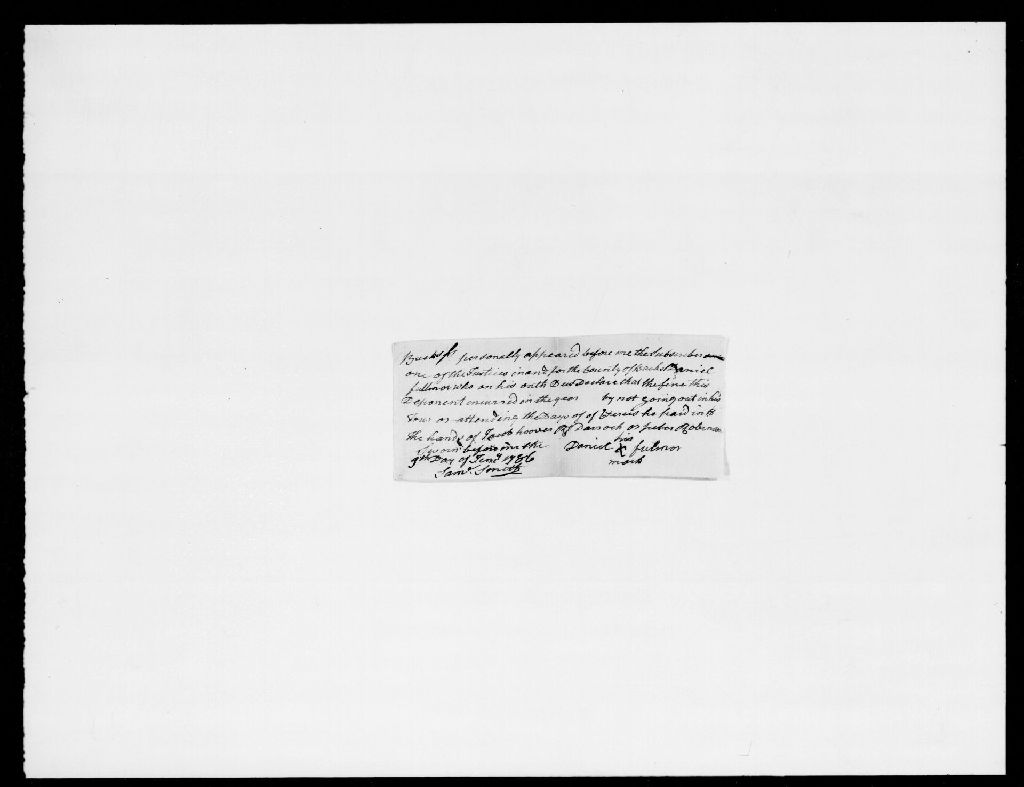 Bucks ss personally appeared before me the Subscriber
one of the Justices in and for the County of Bucks Daniel
fullmor who on his oath Dus Declare that the fine this
Deponent incurred in the year by not going out in his
Tour or attending the Days of of Exersis he paid in to
the hands of Jacob hoover Darroch or peter Robinson
Sworn before me the
9th Day of 1786
Saml. Smith
Daniel his X mark fulmor